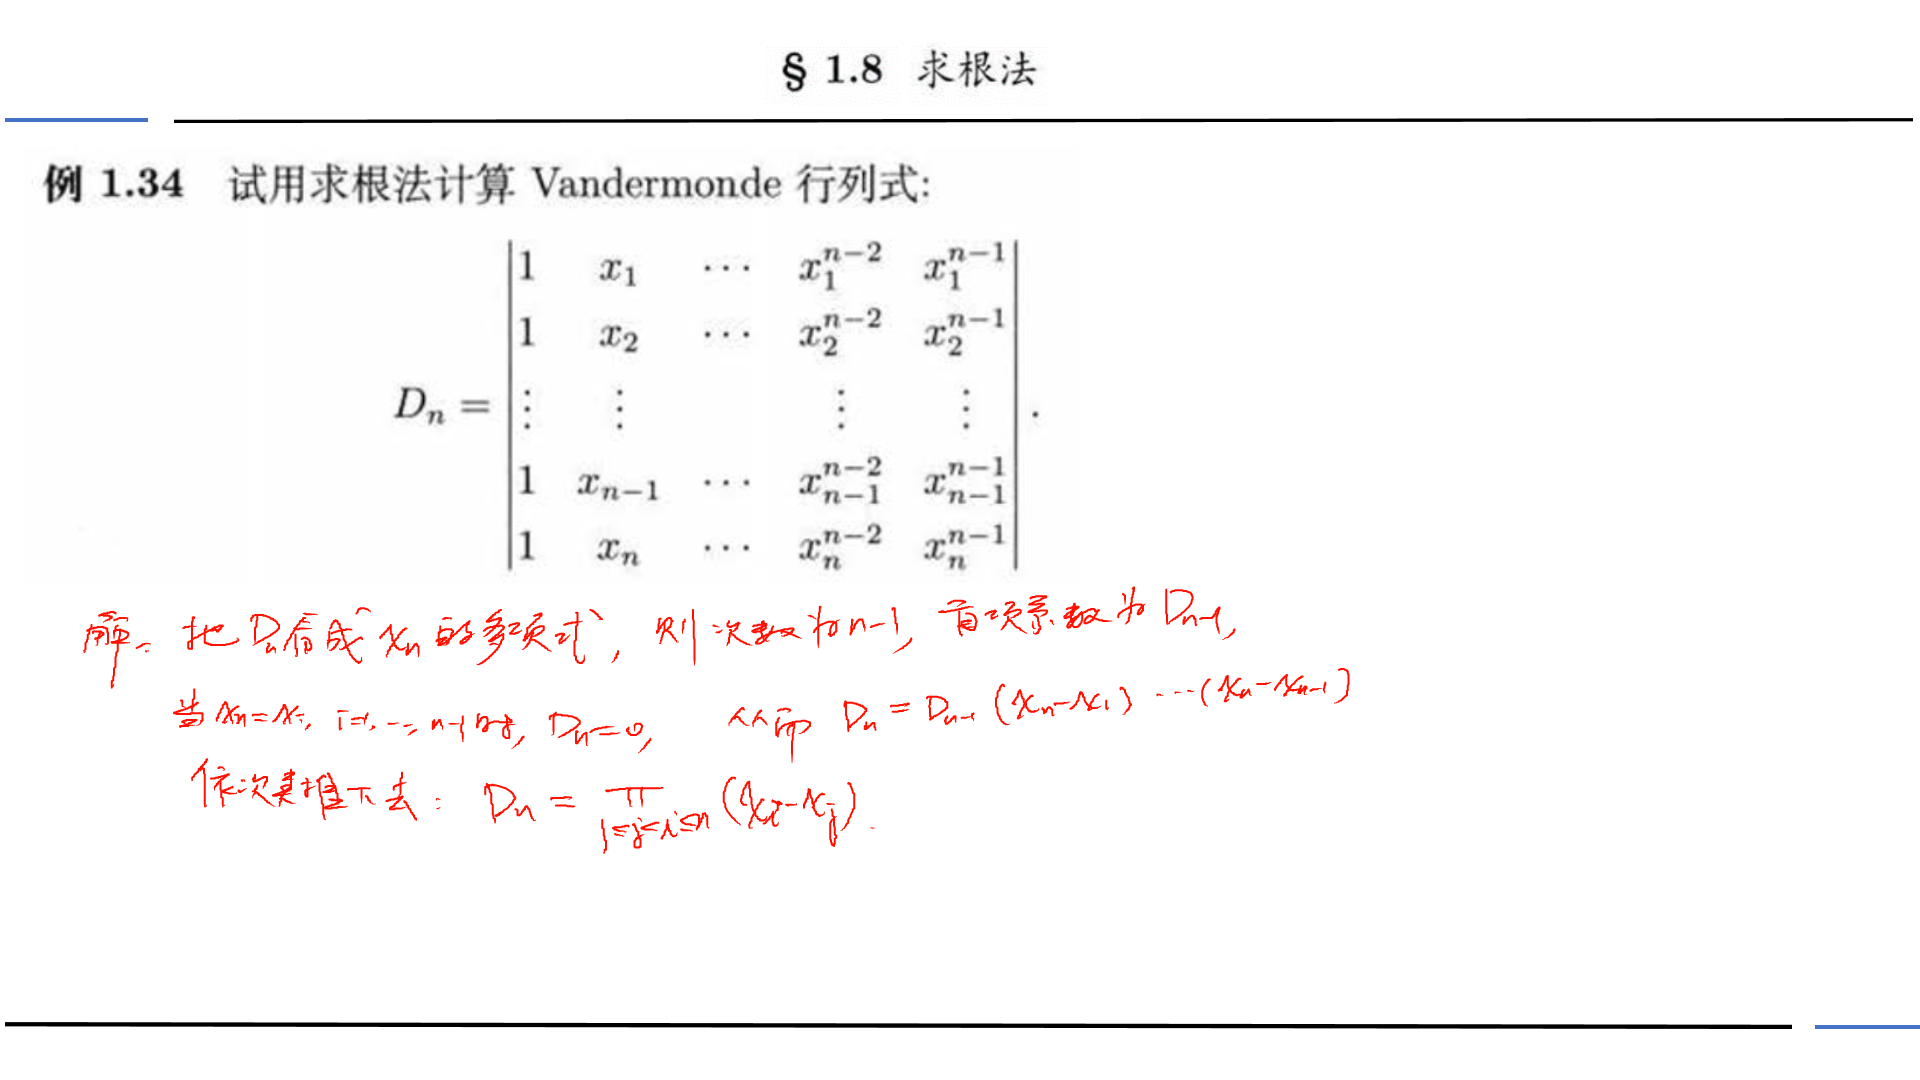 § 1.8 求根法
例 1.34 试用求根法计算 Vandermonde 行列式:
1 x_1 ⋯ x_1^{n-2} x_1^{n-1}
1 x_2 ⋯ x_2^{n-2} x_2^{n-1}
D_n = ⋮ ⋮ ⋮ ⋮ .
1 x_{n-1} ⋯ x_{n-1}^{n-2} x_{n-1}^{n-1}
1 x_n ⋯ x_n^{n-2} x_n^{n-1}
解: 把 D_n 看成 x_n 的多项式, 则次数为 n-1, 首项系数为 D_{n-1},
当 x_n = x_i, i=1, ⋯, n-1 时, D_n = 0, 从而 D_n = D_{n-1} (x_n - x_1) ⋯ (x_n - x_{n-1})
依次类推下去: D_n = ∏_{1≤j<i≤n} (x_i - x_j).